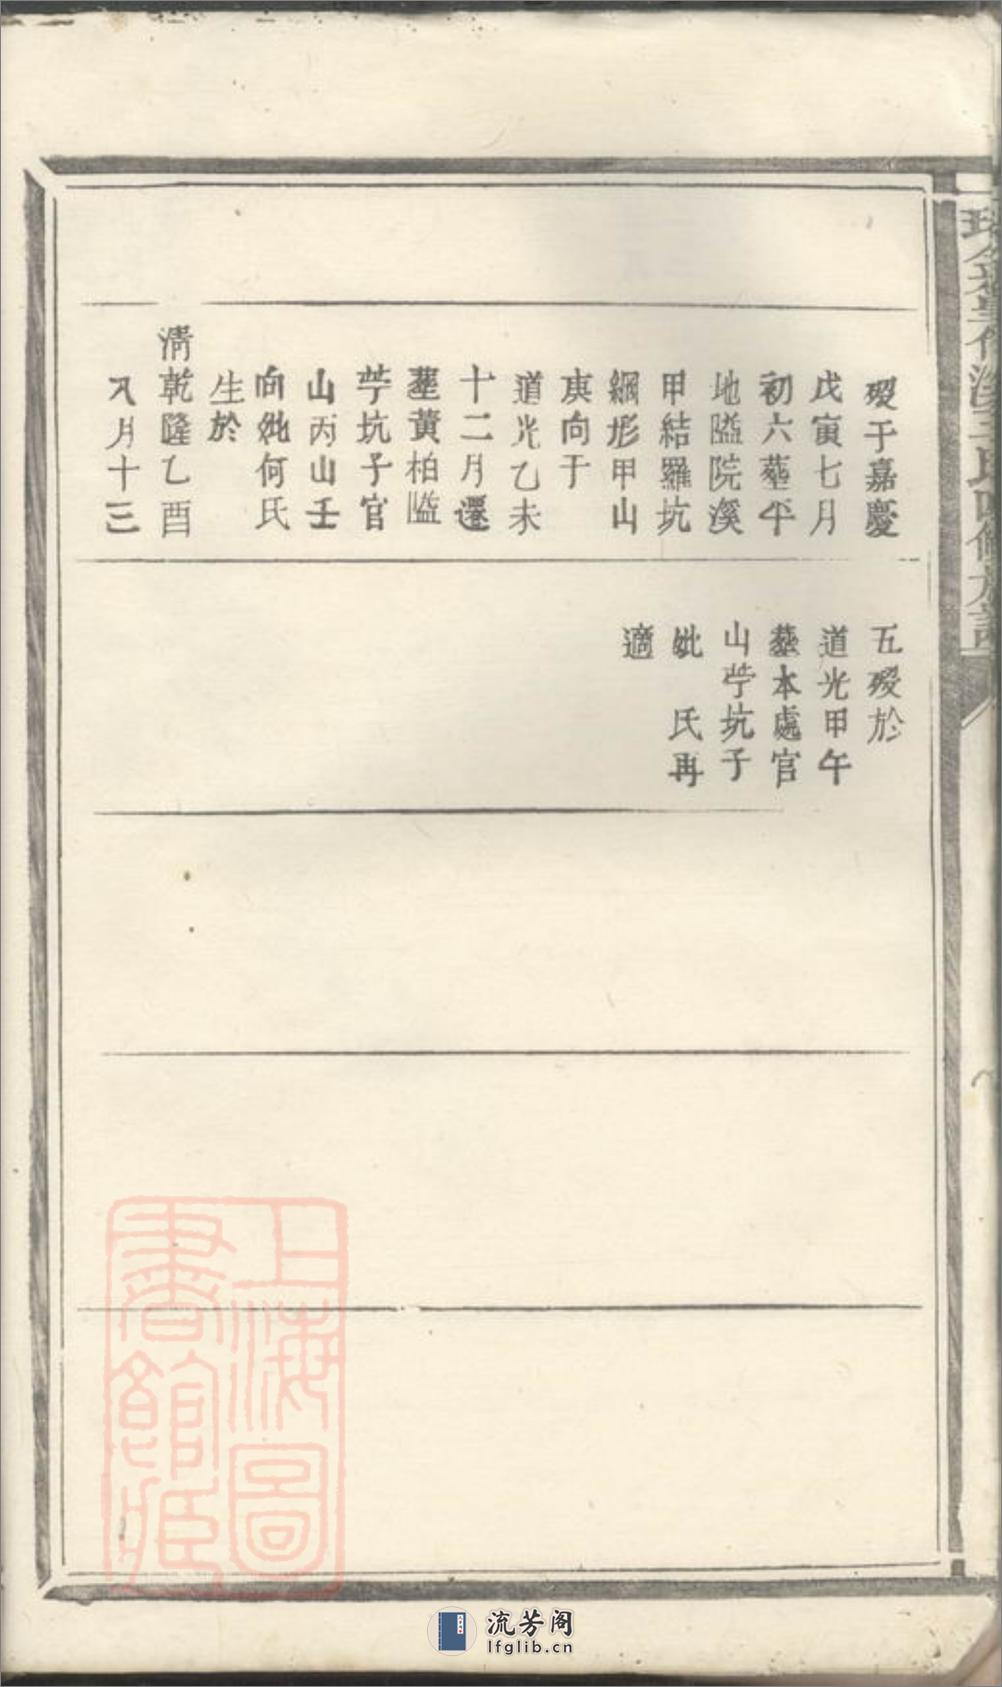 歿于嘉慶
戊寅七月
初六塟平
地隘院溪
甲結羅坑
綱形甲山
庚向于
道光乙未
十二月遷
塟黃柏隘
苧坑子官
山丙山壬
向妣何氏
生於
清乾隆乙酉
八月十三
五歿於
道光甲午
塟本處官
山苧坑子
妣 氏再
適
氏四修族譜
上海圖
書館藏
流芳阁
lfglib.cn